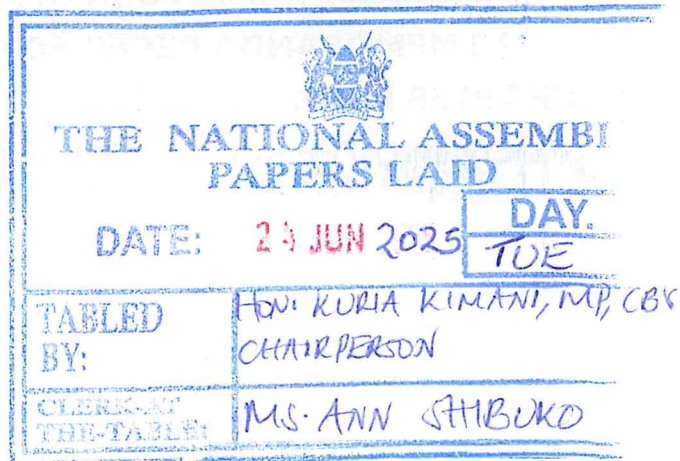 THE NATIONAL ASSEMBL
PAPERS LAID
DATE: 24 JUN 2025 DAY.
TUE
TABLED BY: HON: KURIA KIMANI, MP, CBS
CHAIRPERSON
CLERK-AT
THE-TABLE: MS. ANN SHIBUKO